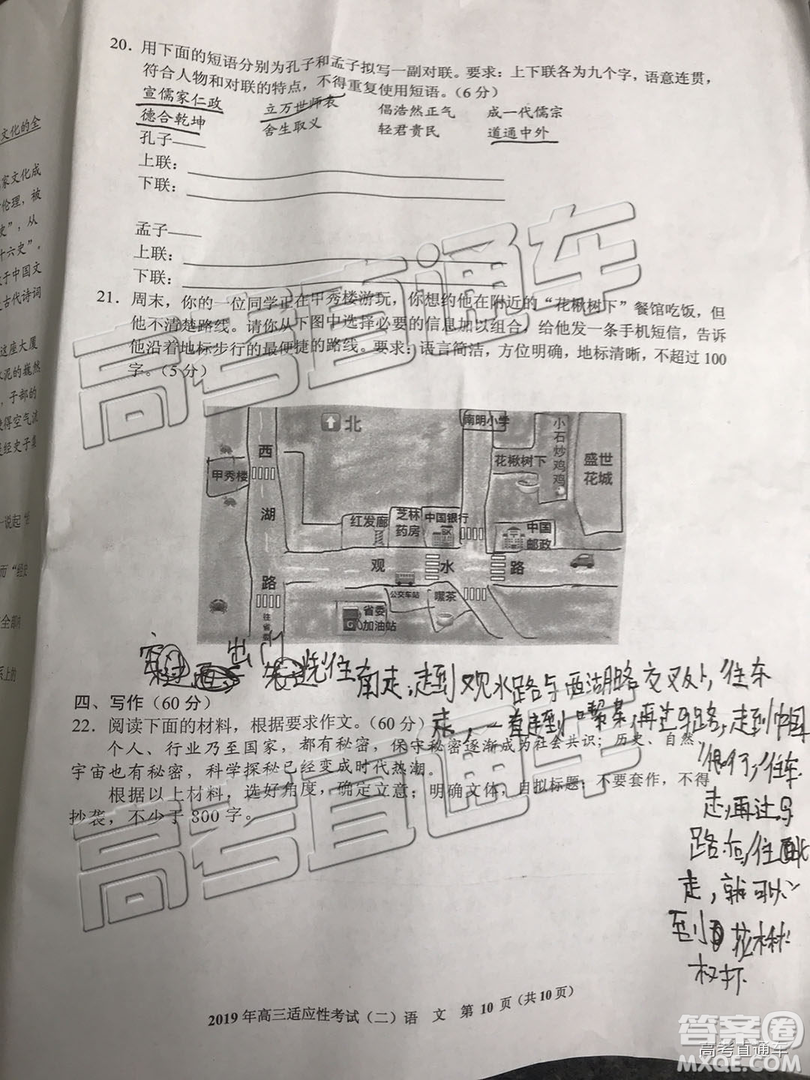 20．用下面的短语分别为孔子和孟子拟写一副对联。要求：上下联各为九个字，语意连贯，
符合人物和对联的特点，不得重复使用短语。（6分）
宣儒家仁政 立万世师表 倡浩然正气 成一代儒宗
德合乾坤 舍生取义 轻君贵民 道通中外
孔子——
上联：
下联：
孟子——
上联：
下联：
21．周末，你的一位同学正在甲秀楼游玩，你想约他在附近的“花楸树下”餐馆吃饭，但
他不清楚路线。请你从下图中选择必要的信息加以组合，给他发一条手机短信，告诉
他沿着地标步行的最便捷的路线。要求：语言简洁，方位明确，地标清晰，不超过100
字。（5分）
北
南明小学
小石炒鸡
西湖路
甲秀楼
花楸树下
盛世花城
红发廊
芝林药房
中国银行
中国邮政
观水路
公交车站
嘬茶
省委加油站
出门
往东
南走，走到观水路与西湖路交叉处，往东
走，一直走到
再过马路，走到中国
银行，往东
走，再过马
路后，往北
走，就可以
到
四、写作（60分）
22．阅读下面的材料，根据要求作文。（60分）
个人、行业乃至国家，都有秘密，保守秘密逐渐成为社会共识；历史、自然、
宇宙也有秘密，科学探秘已经变成时代热潮。
根据以上材料，选好角度，确定立意；明确文体，自拟标题；不要套作，不得
抄袭，不少于800字。
2019年高三适应性考试（二）语 文 第10页（共10页）
文化的全
家文化成
伦理，被
史”，从
十六史”。
于中国文
古代诗词
这座大厦
高考直通车
高考直通车
答案圈
高考直通车